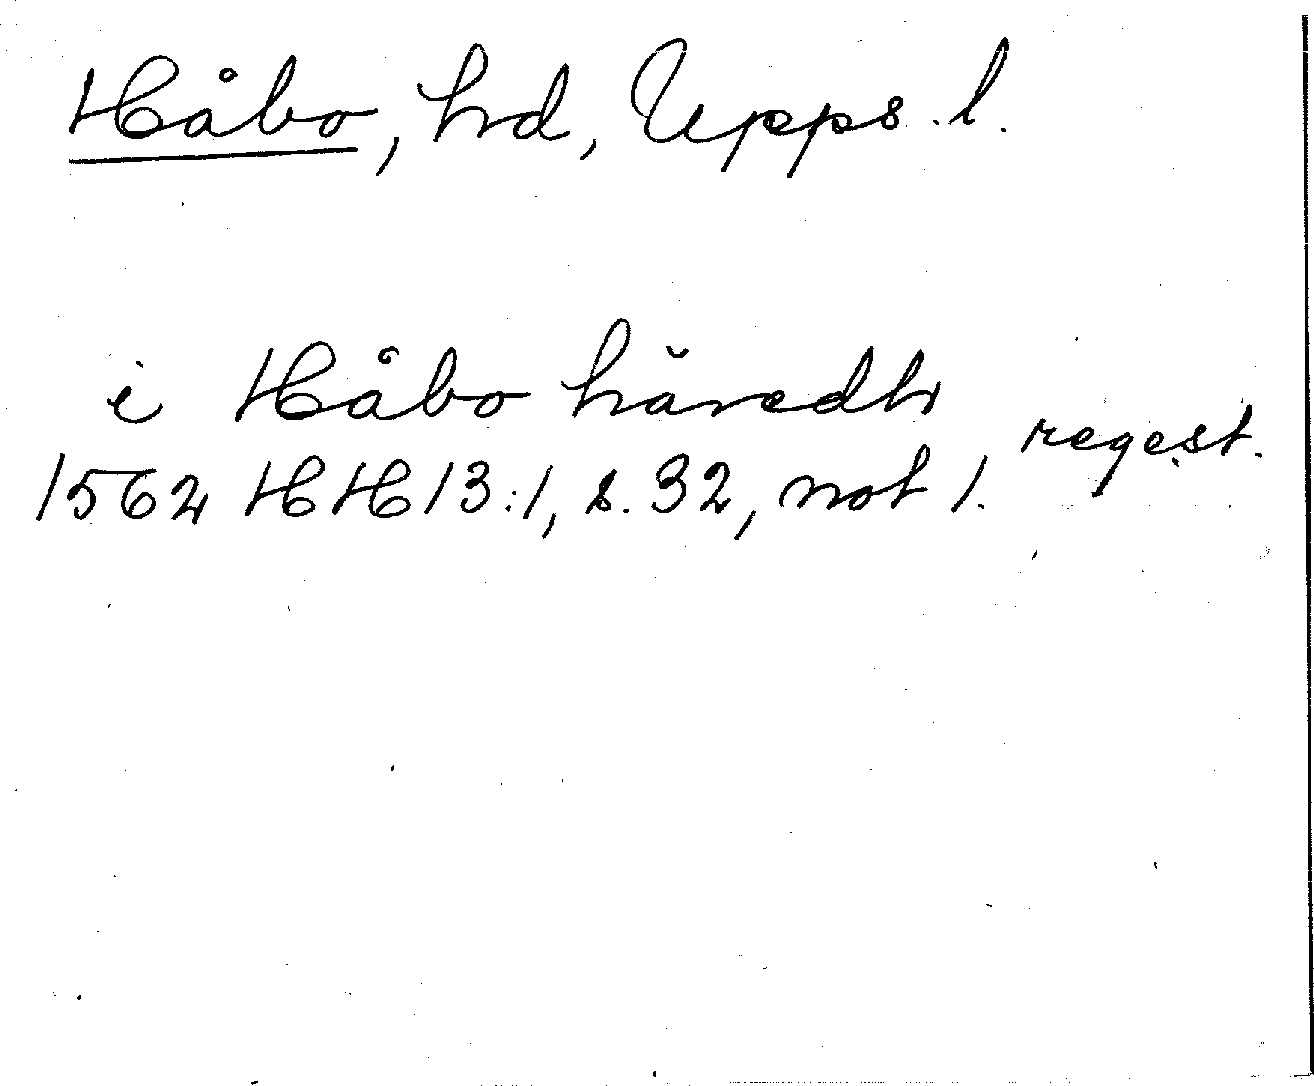 Håbo, hd, Upps. l.
i Håbo häredh
1562 HH 13:1, s. 32, not 1. regest.